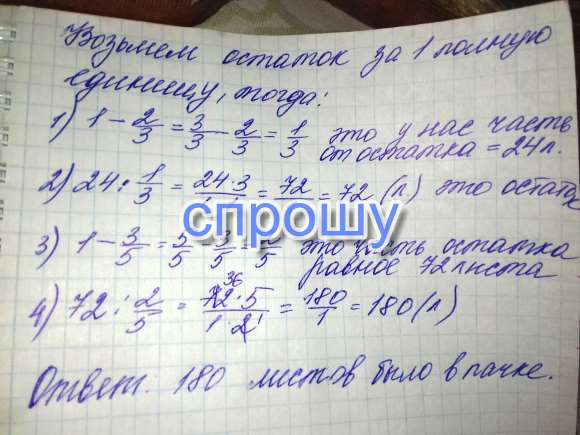 Возьмем остаток за 1 полную
единицу, тогда:
1) 1 - 2/3 = 3/3 - 2/3 = 1/3 это у нас часть
от остатка = 24л.
2) 24 : 1/3 = 24·3/1·1 = 72/1 = 72 (л) это остаток
спрошу
3) 1 - 3/5 = 5/5 - 3/5 = 2/5 это часть остатка
равное 72 листа
4) 72 : 2/5 = 72·5/1·2 = 180/1 = 180 (л)
Ответ. 180 листов было в пачке.